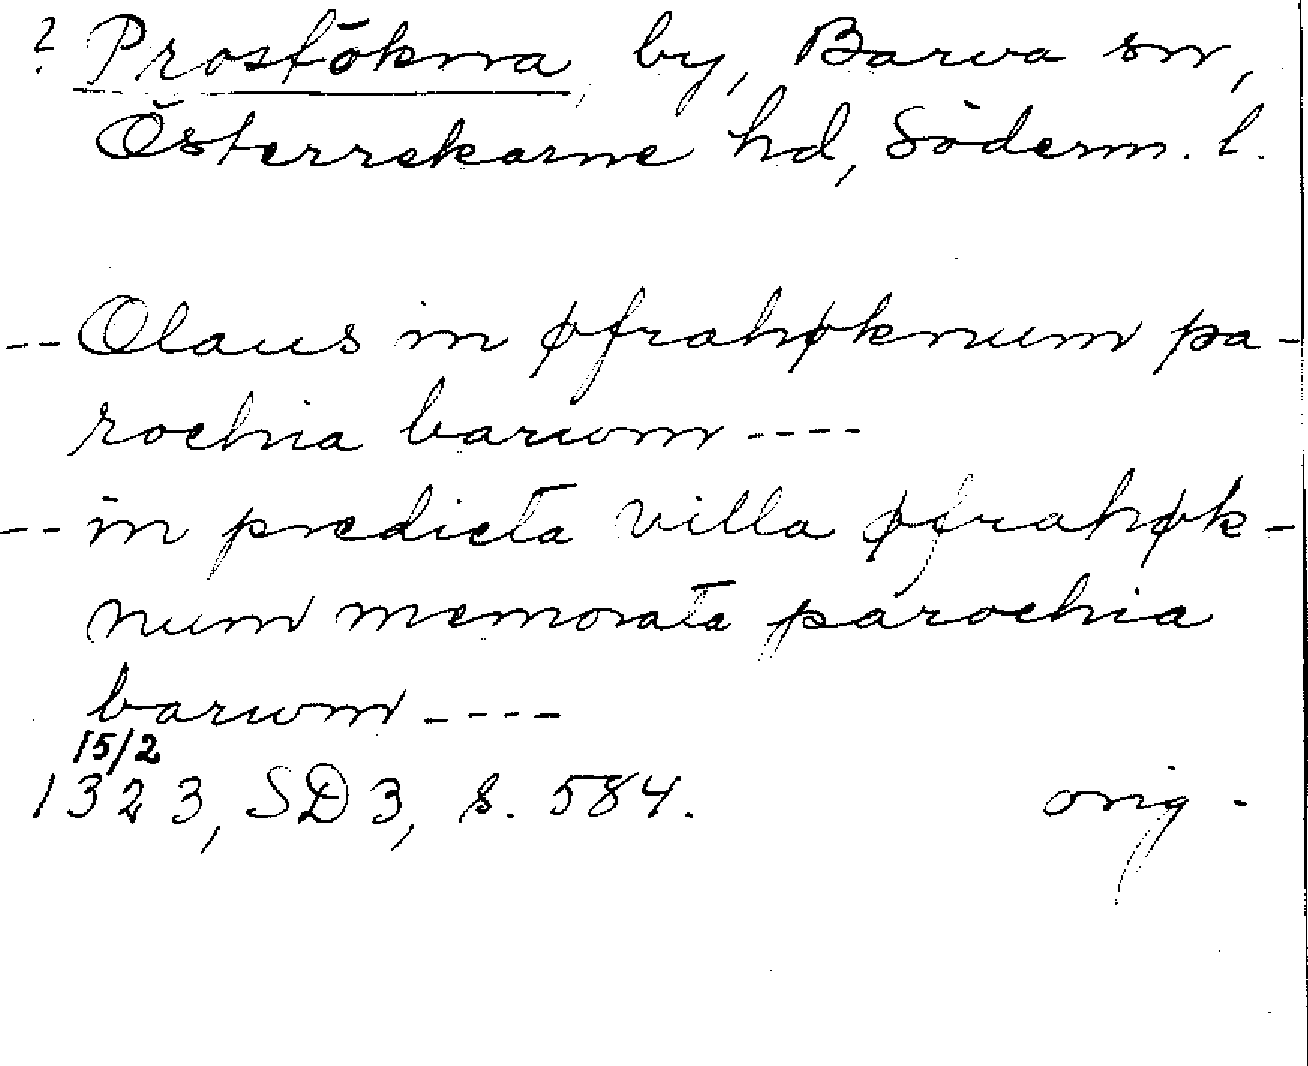 ? Prostökna, by, Barva sn,
Österrekarne hd, Söderm. l.
-- Olaus in øfrahøknum pa-
rochia barwom ----
-- in predicta villa øfrahøk-
num memorata parochia
barwom ----
15/2
1323, SD 3, s. 584. orig.